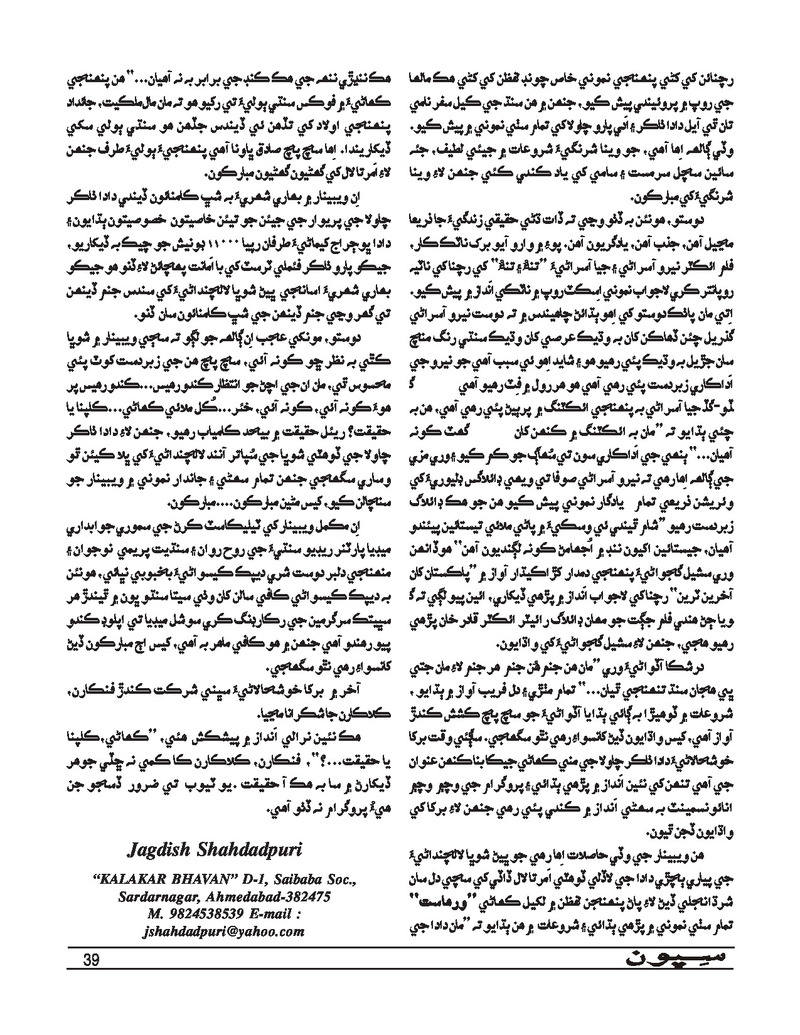 رچنائن کي کڻي پنھنجي نموني خاص چونڊ لفظن کي کڻي ھڪ مالھا
جي روپ ۾ پروئيندي پيش ڪيو، جنھن ۾ ھن سنڌ جي ڪيل سفر نامي
تان ٿي آيل دادا ٺاڪر ۽ اَني پارو چاولا کي تمام سٺي نموني ۾ پيش ڪيو.
وڏي ڳالھہ اِھا آھي، جو وينا شرنگيءَ شروعات ۾ جيئي لطيف، جئہ
سائين سچل سرمست ۽ سامي کي ياد ڪندي ڪئي جنھن لاءِ وينا
شرنگيءَ کي مبارڪون.
دوستو، مونئن بہ ڏٺو وڃي تہ ذات ڌڻي حقيقي زندگيءَ جا ذريعا
مڃيل آھن، جذب آھن، يادگريون آھن. پوءِ ۾ وارو آيو برک ناٽڪڪار،
فلم ائڪٽر نيرو آسراڻي ۽ جيا آسراڻيءَ ”تنھا ۽ تنھا“ کي رچنا کي ناٽيہ
روپانتر ڪري لاجواب نموني اِسڪٽ روپ ۾ ناٽڪي انداز ۾ پيش ڪيو.
اِتي مان پاٺڪ دوستو کي اِھو ٻڌائڻ چاھيندس ۾ تہ دوست نيرو آسراڻي
گذريل چئن ڏھاڪن کان بہ وڌيڪ عرصي کان وڌيڪ سنڌي رنگ منچ
سان جڙيل بہ وڌيڪ پئي رھيو ھو ۽ شايد اِھو ئي سبب آھي جو نيرو جي
اَداڪاري زبردست پئي رھي آھي ھو ھر رول ۾ فٽ رھيو آھي گ
ڏو-گڏ جيا آسراڻي بہ پنھنجي ائڪٽنگ ۾ پرپڻ پئي رھي آھي، ھن بہ
چئي ٻڌايو تہ ”مان بہ ائڪٽنگ ۾ ڪنھن کان گھٽ ڪونہ
آھيان...“ ٻنھي جي اَداڪاري سون تي سُھاڳ جو ڪم ڪيو ۽ وري مزي
جي ڳالھہ اِھا رھي تہ نيرو آسراڻي صوفا تي ويھي ڊائلاگس ڊليوريءَ کي
وئريشن ذريعي تمام يادگار نموني پيش ڪيو ھن جو ھڪ ڊائلاگ
زبردست رھيو ”شام ٿيندي ئي وِسڪيءَ ۾ پاڻي ملائي تيستائين پيئندو
آھيان، جيستائين اکيون ننڊ ۾ اُجھامڻ ڪونہ لڳنديون آھن“ ھوڏانھن
وري سشيل گجواڻيءَ پنھنجي دمدار کڙاڪيدار آواز ۾ ”پاڪستان کان
آخرين ٽرين“ رچنا کي لاجواب انداز ۾ پڙھي ڏيکاري، ائين پيو لڳي تہ ڳ
وياڄڻ ھندي فلم جڳت جو مھان ڊائلاگ رائيٽر ائڪٽر قادر خان پڙھي
رھيو ھجي، جنھن لاءِ سشيل گجواڻيءَ کي واڌايون.
درشڪا آڏواڻيءَ وري ”مان ھن جنم ڦن جنم ھر جنم لاءِ مان جتي
پي ھجان سنڌ تنھنجي ٿيان...“ تمام مٺڙي ۽ دل فريب آواز ۾ ٻڌايو ،
شروعات ۾ ٿوھيڙا بہ ڳائي ٻڌايا آڏواڻيءَ جو سچ پچ ڪشش ڪندڙ
آواز آھي، ڪيس واڌايون ڏيڻ کانسواءِ رھي نٿو سگھجي. سڳئي وقت برڪا
خوشحالاڻيءَ دادا ٺاڪر چاولا جي مني ڪھاڻي جيڪا بنا ڪنھن عنوان
جي آھي تنھن کي نئين انداز ۾ پڙھي ٻڌائي ۽ پروگرام جي وچ ۾ وچ ۾
انائونسمينٽ بہ سھڻي انداز ۾ ڪندي پئي رھي جنھن لاءِ برڪا کي
واڌايون ڏجن ٿيون.
ھن ويبينار جي وڏي حاصلات اِھا رھي جو ڀيڻ شوڀا لالچنداڻيءَ
جي پياري ٻچڙي دادا جي لاڏلي ڏوھٽي اَمرتا لال ڏاڏي کي سچي دل سان
شرڌانجلي ڏيڻ لاءِ پاڻ پنھنجن لفظن ۾ لکيل ڪھاڻي ”ورھاست“
تمام سٺي نموني ۾ پڙھي ٻڌائي ۽ شروعات ۾ ھن ٻڌايو تہ ”مان دادا جي
ھڪ ننڍڙي ننھہ جي ھڪ ڪنڊ جي برابر بہ نہ آھيان...“ ھن پنھنجي
ڪھاڻيءَ ۾ فوڪس سنڌي ٻوليءَ تي رکيو ھو تہ مان مال ملڪيت، جائداد
پنھنجي اولاد کي تڏھن ئي ڏيندس جڏھن ھو سنڌي ٻولي سکي
ڏيکاريندا. اِھا سچ پچ صادق ڀاونا آھي پنھنجيءَ ٻوليءَ طرف جنھن
لاءِ اَمرتا لال کي گھڻيون گھڻيون مبارڪون.
اِن ويبينار ۾ بھاري شھريءَ بہ شڀ ڪامنائون ڏيندي دادا ٺاڪر
چاولا جي پريوار جي جيئن جو تيئن خاصيتون خصوصيتون ٻڌايون ۽
دادا ڀوڄراج کيماڻيءَ طرفان رپيا ١١٠٠٠ يونيش جو چيڪ بہ ڏيکاريو،
جيڪو پارو ٺاڪر فئملي ٽرسٽ کي با امانت پھچائڻ لاءِ ڏنو ھو جيڪو
بھاري شھريءَ اسانجي ڀيڻ شوڀا لالچنداڻيءَ کي سندس جنم ڏينھن
تي گھر وڃي جنم ڏينھن جي شڀ ڪامنائون سان ڏنو.
دوستو، مونکي عجب اِن ڳالھہ جو لڳو تہ سڄي ويبينار ۾ شوڀا
ڪٿي بہ نظر ڇو ڪونہ آئي، سچ پچ ھن جي زبردست کوٽ پئي
محسوس ٿي، مان ان جي اچڻ جو انتظار ڪندو رھيس...ڪندو رھيس پر
ھوءَ ڪونہ آئي، ڪونہ آئي، خئر...ڪُل ملائي ڪھاڻي...ڪلپنا يا
حقيقت؟ رئيل حقيقت ۾ بيحد ڪامياب رھيو، جنھن لاءِ دادا ٺاڪر
چاولا جي ڏوھٽي شوڀا جي سُپاتر آنند لالچنداڻيءَ کي ڀلا ڪيئن ٿو
وساري سگھجي جنھن تمام سھڻي ۽ جاندار نموني ۾ ويبينار جو
سنچالن ڪيو، ڪيس مڻين مبارڪون....مبارڪون.
اِن مڪمل ويبينار کي ٽيليڪاسٽ ڪرڻ جي سموري جوابداري
ميڊيا پارٽنر ريڊيو سنڌيءَ جي روح روان ۽ سنڌيت پريمي نوجوان ۽
منھنجي دلبر دوست شري ديپڪ ڪيسواڻيءَ بخوبي نڀائي، مونئن
بہ ديپڪ ڪيسواڻي ڪافي سالن کان وٺي سيتا سنڌو ڀون ۾ ٿيندڙ ھر
سڀيتڪ سرگرمين جي رڪارڊنگ ڪري سوشل ميڊيا تي اپلوڊ ڪندو
پيو رھندو آھي جنھن ۾ ھو ڪافي ماھر بہ آھي، ڪيس اڄ مبارڪون ڏيڻ
کانسواءِ رھي نٿو سگھجي.
آخر ۾ برکا خوشحالاڻيءَ سڀني شرڪت ڪندڙ فنڪارن،
ڪلاڪارن جا شڪرانا مڃيا.
ھڪ نئين نرالي انداز ۾ پيشڪش ھئي، ”ڪھاڻي، ڪلپنا
يا حقيقت...؟“، فنڪارن، ڪلاڪارن ڪا ڪمي نہ ڇڏي جوھر
ڏيکارڻ ۾ سا بہ ھڪ آ حقيقت .يو ٽيوب تي ضرور ڏسجو جن
ھيءُ پروگرام نہ ڏٺو آھي.
Jagdish Shahdadpuri
“KALAKAR BHAVAN” D-1, Saibaba Soc.,
Sardarnagar, Ahmedabad-382475
M. 9824538539 E-mail :
jshahdadpuri@yahoo.com
39
سِپون